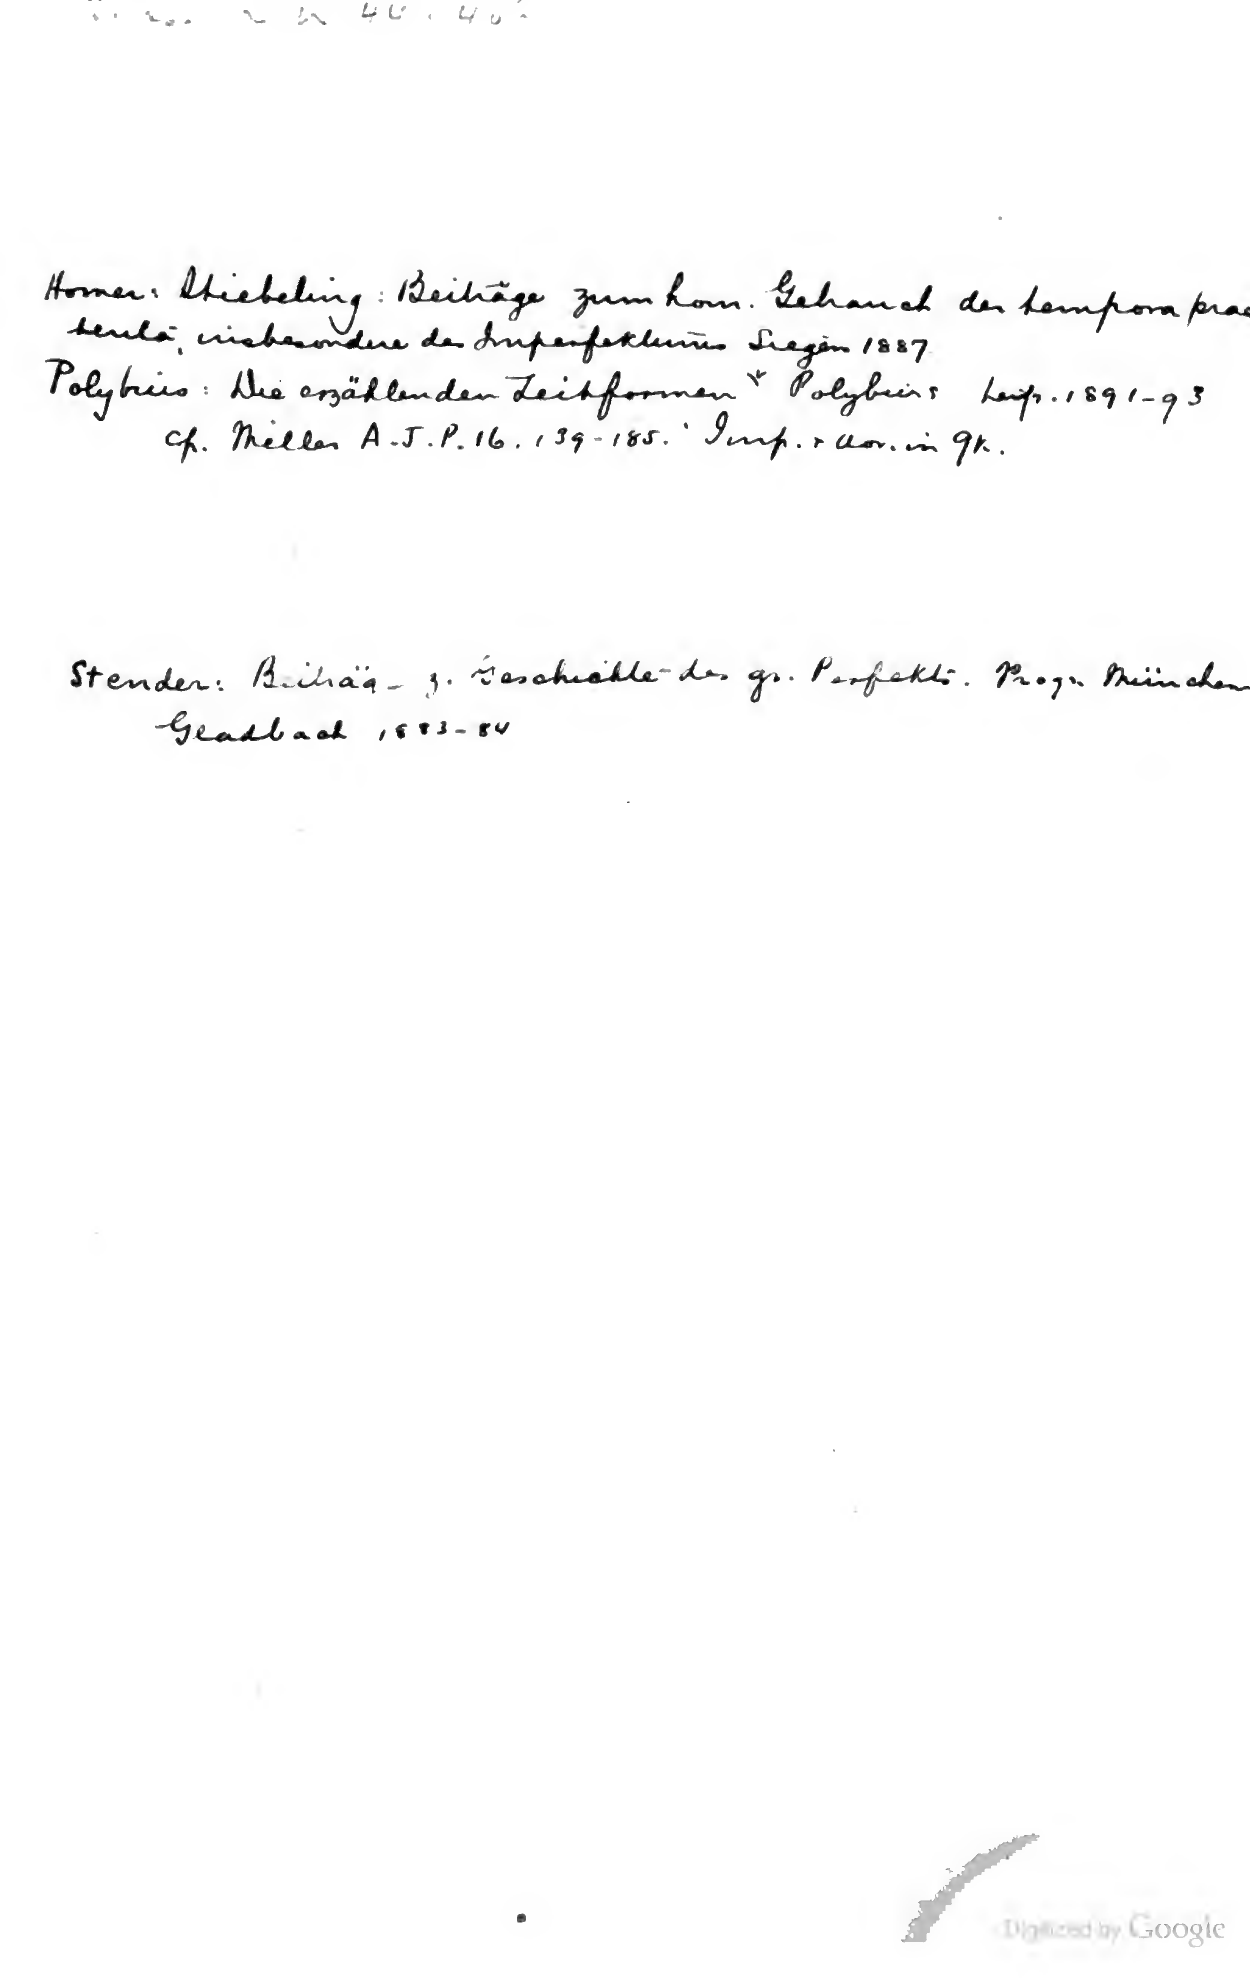 Homer: Stiebeling: Beiträge zum hom. Gebrauch der tempora prae
terita, insbesondere des Imperfektums Siegen 1887
Polybius: Die erzählenden Zeitformen Polybius Leip. 1891-93
cf. Miller A.J.P. 16. 139-185. Imp. + Aor. in Gk.
Stender: Beiträg- z. Geschichte des gr. Perfekts. Progr. München
Gladbach 1883-84
Digitized by Google